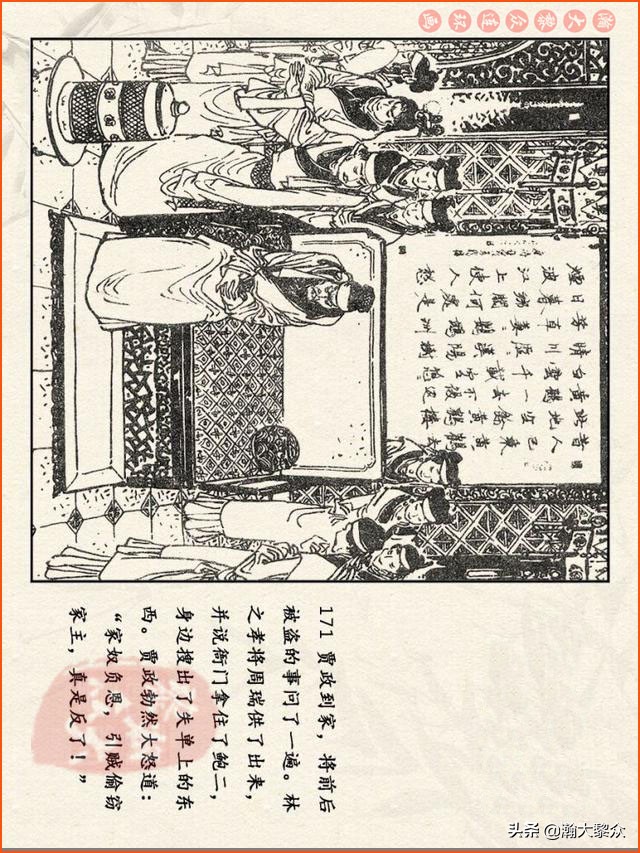 瀚大黎众连环画
昔人已乘黄鶴去
此地空餘黄鶴樓
黄鶴一去不復返
白雲千載空悠悠
晴川歷歷漢陽樹
芳草萋萋鸚鵡洲
日暮鄉關何處是
煙波江上使人愁
171 贾政到家，将前后
被盗的事问了一遍。林
之孝将周瑞供了出来，
并说衙门拿住了鲍二，
身边搜出了失单上的东
西。贾政勃然大怒道：
“家奴负恩，引贼偷窃
家主，真是反了！”
头条 @瀚大黎众